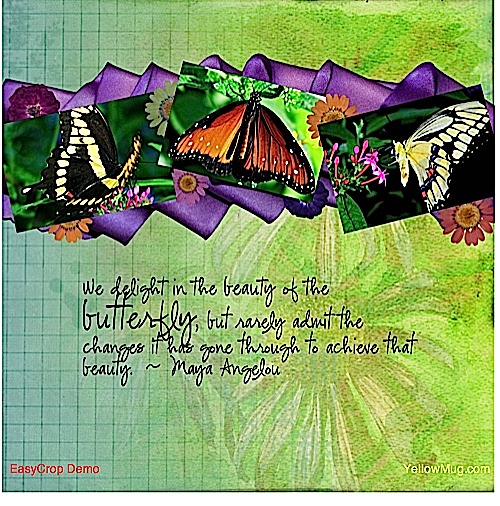 We delight in the beauty of the
butterfly, but rarely admit the
changes it has gone through to achieve that
beauty. ~ Maya Angelou
EasyCrop Demo
YellowMug.com